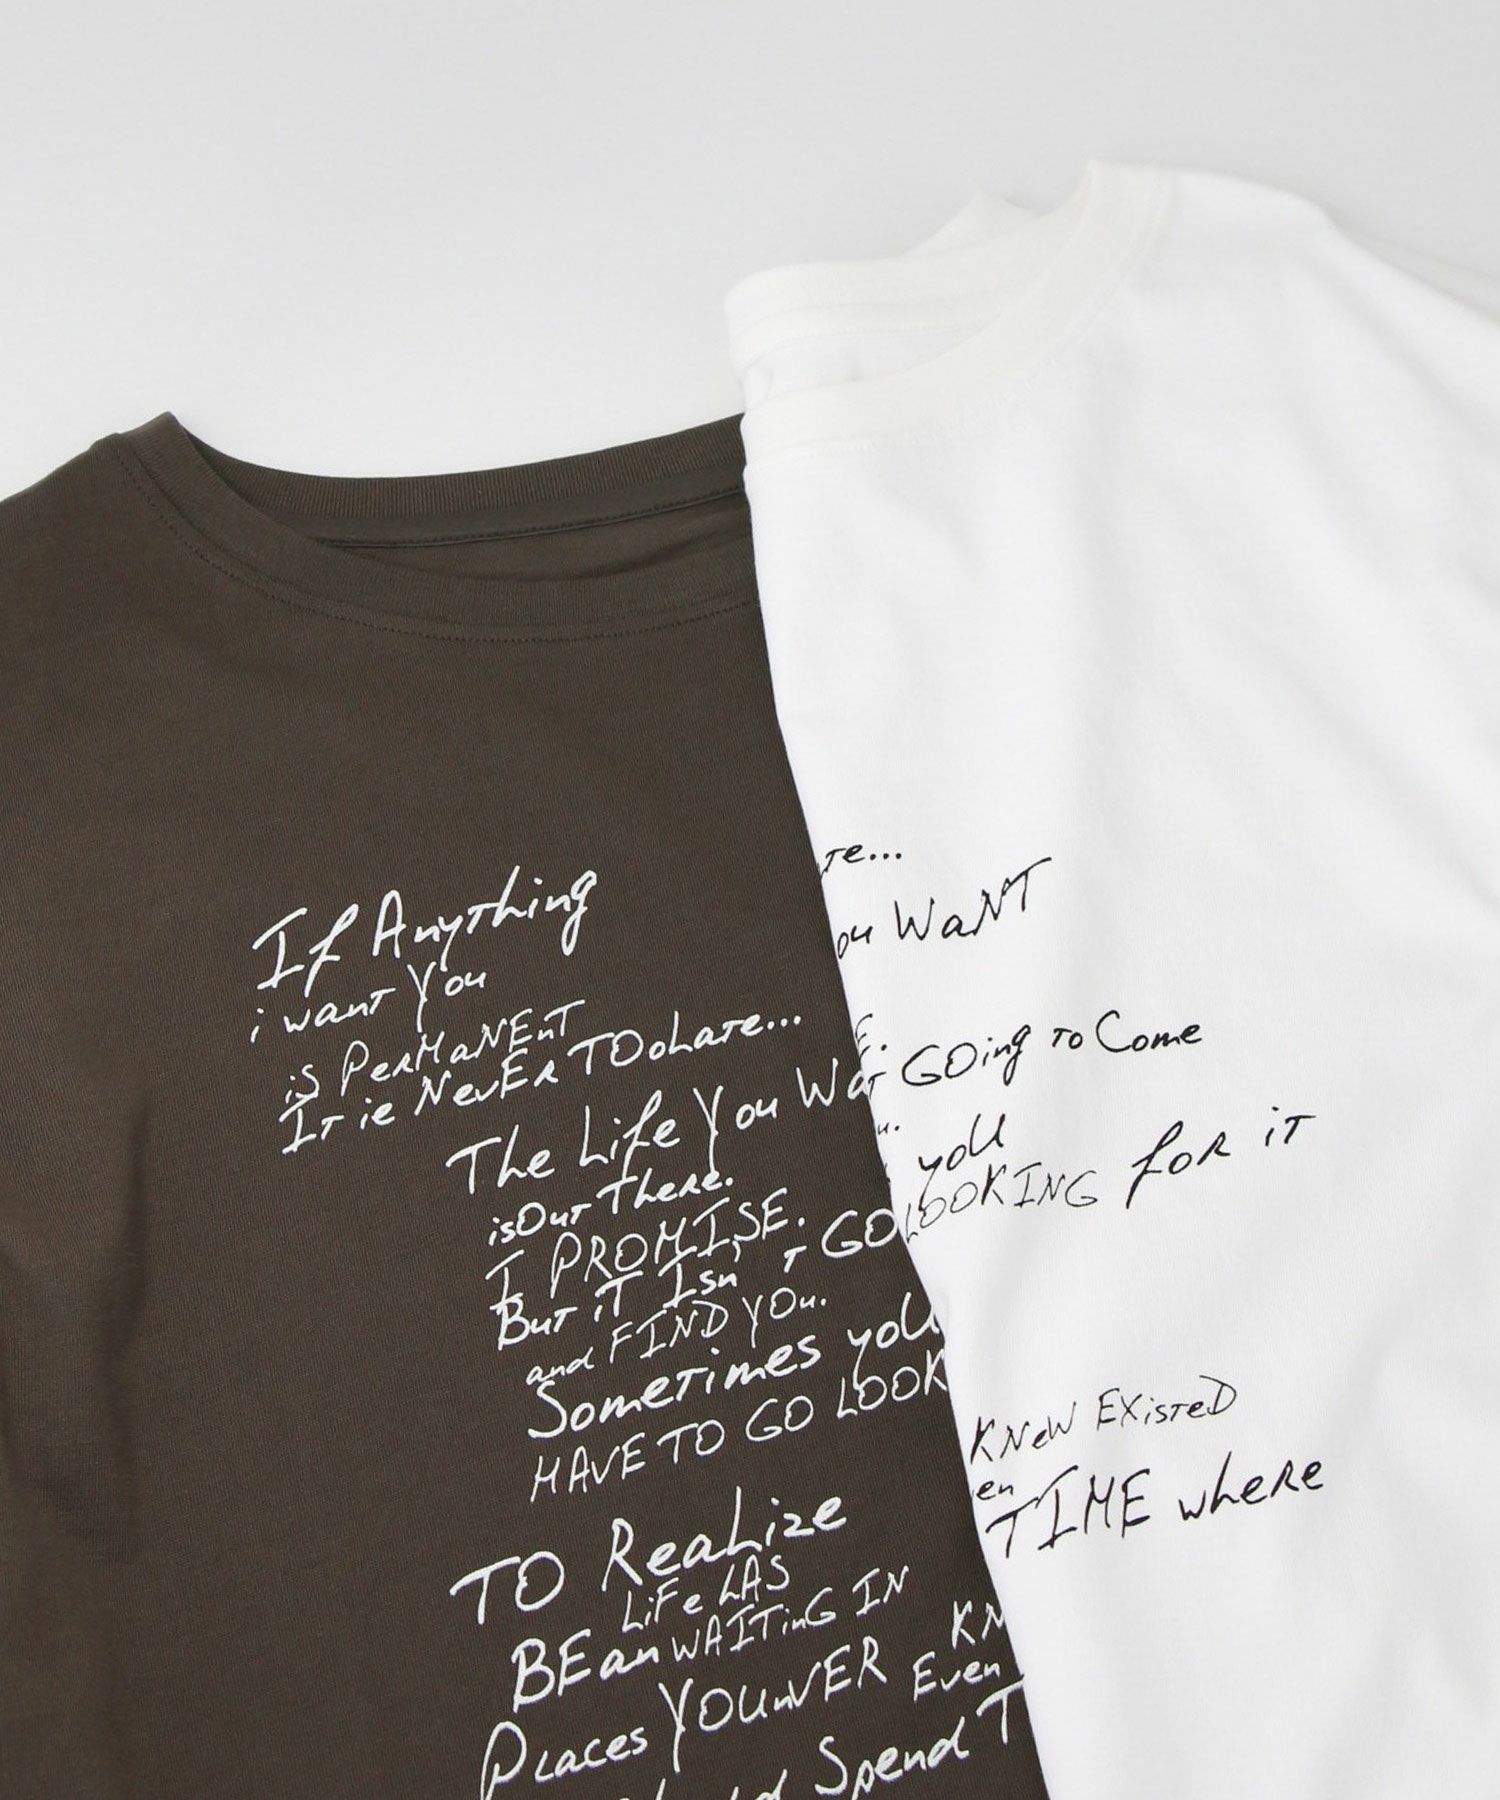 If Anything
i want You
iS PerMaNEnT
IT ie NevER TOo LaTe...
The Life You Wa
isOuT There.
I PROMISE.
But iT Isn'T GO
and FIND YOu.
Sometimes you
HAVE TO GO LOOK
TO ReaLize
LiFe LAS
BEan WAITinG IN
Places YOUnVER Even KN
Spend T
Te...
ou WaNT
E.
T GOing To Come
u.
you
LOOKING foR iT
KNeW EXisTeD
en
TIME where